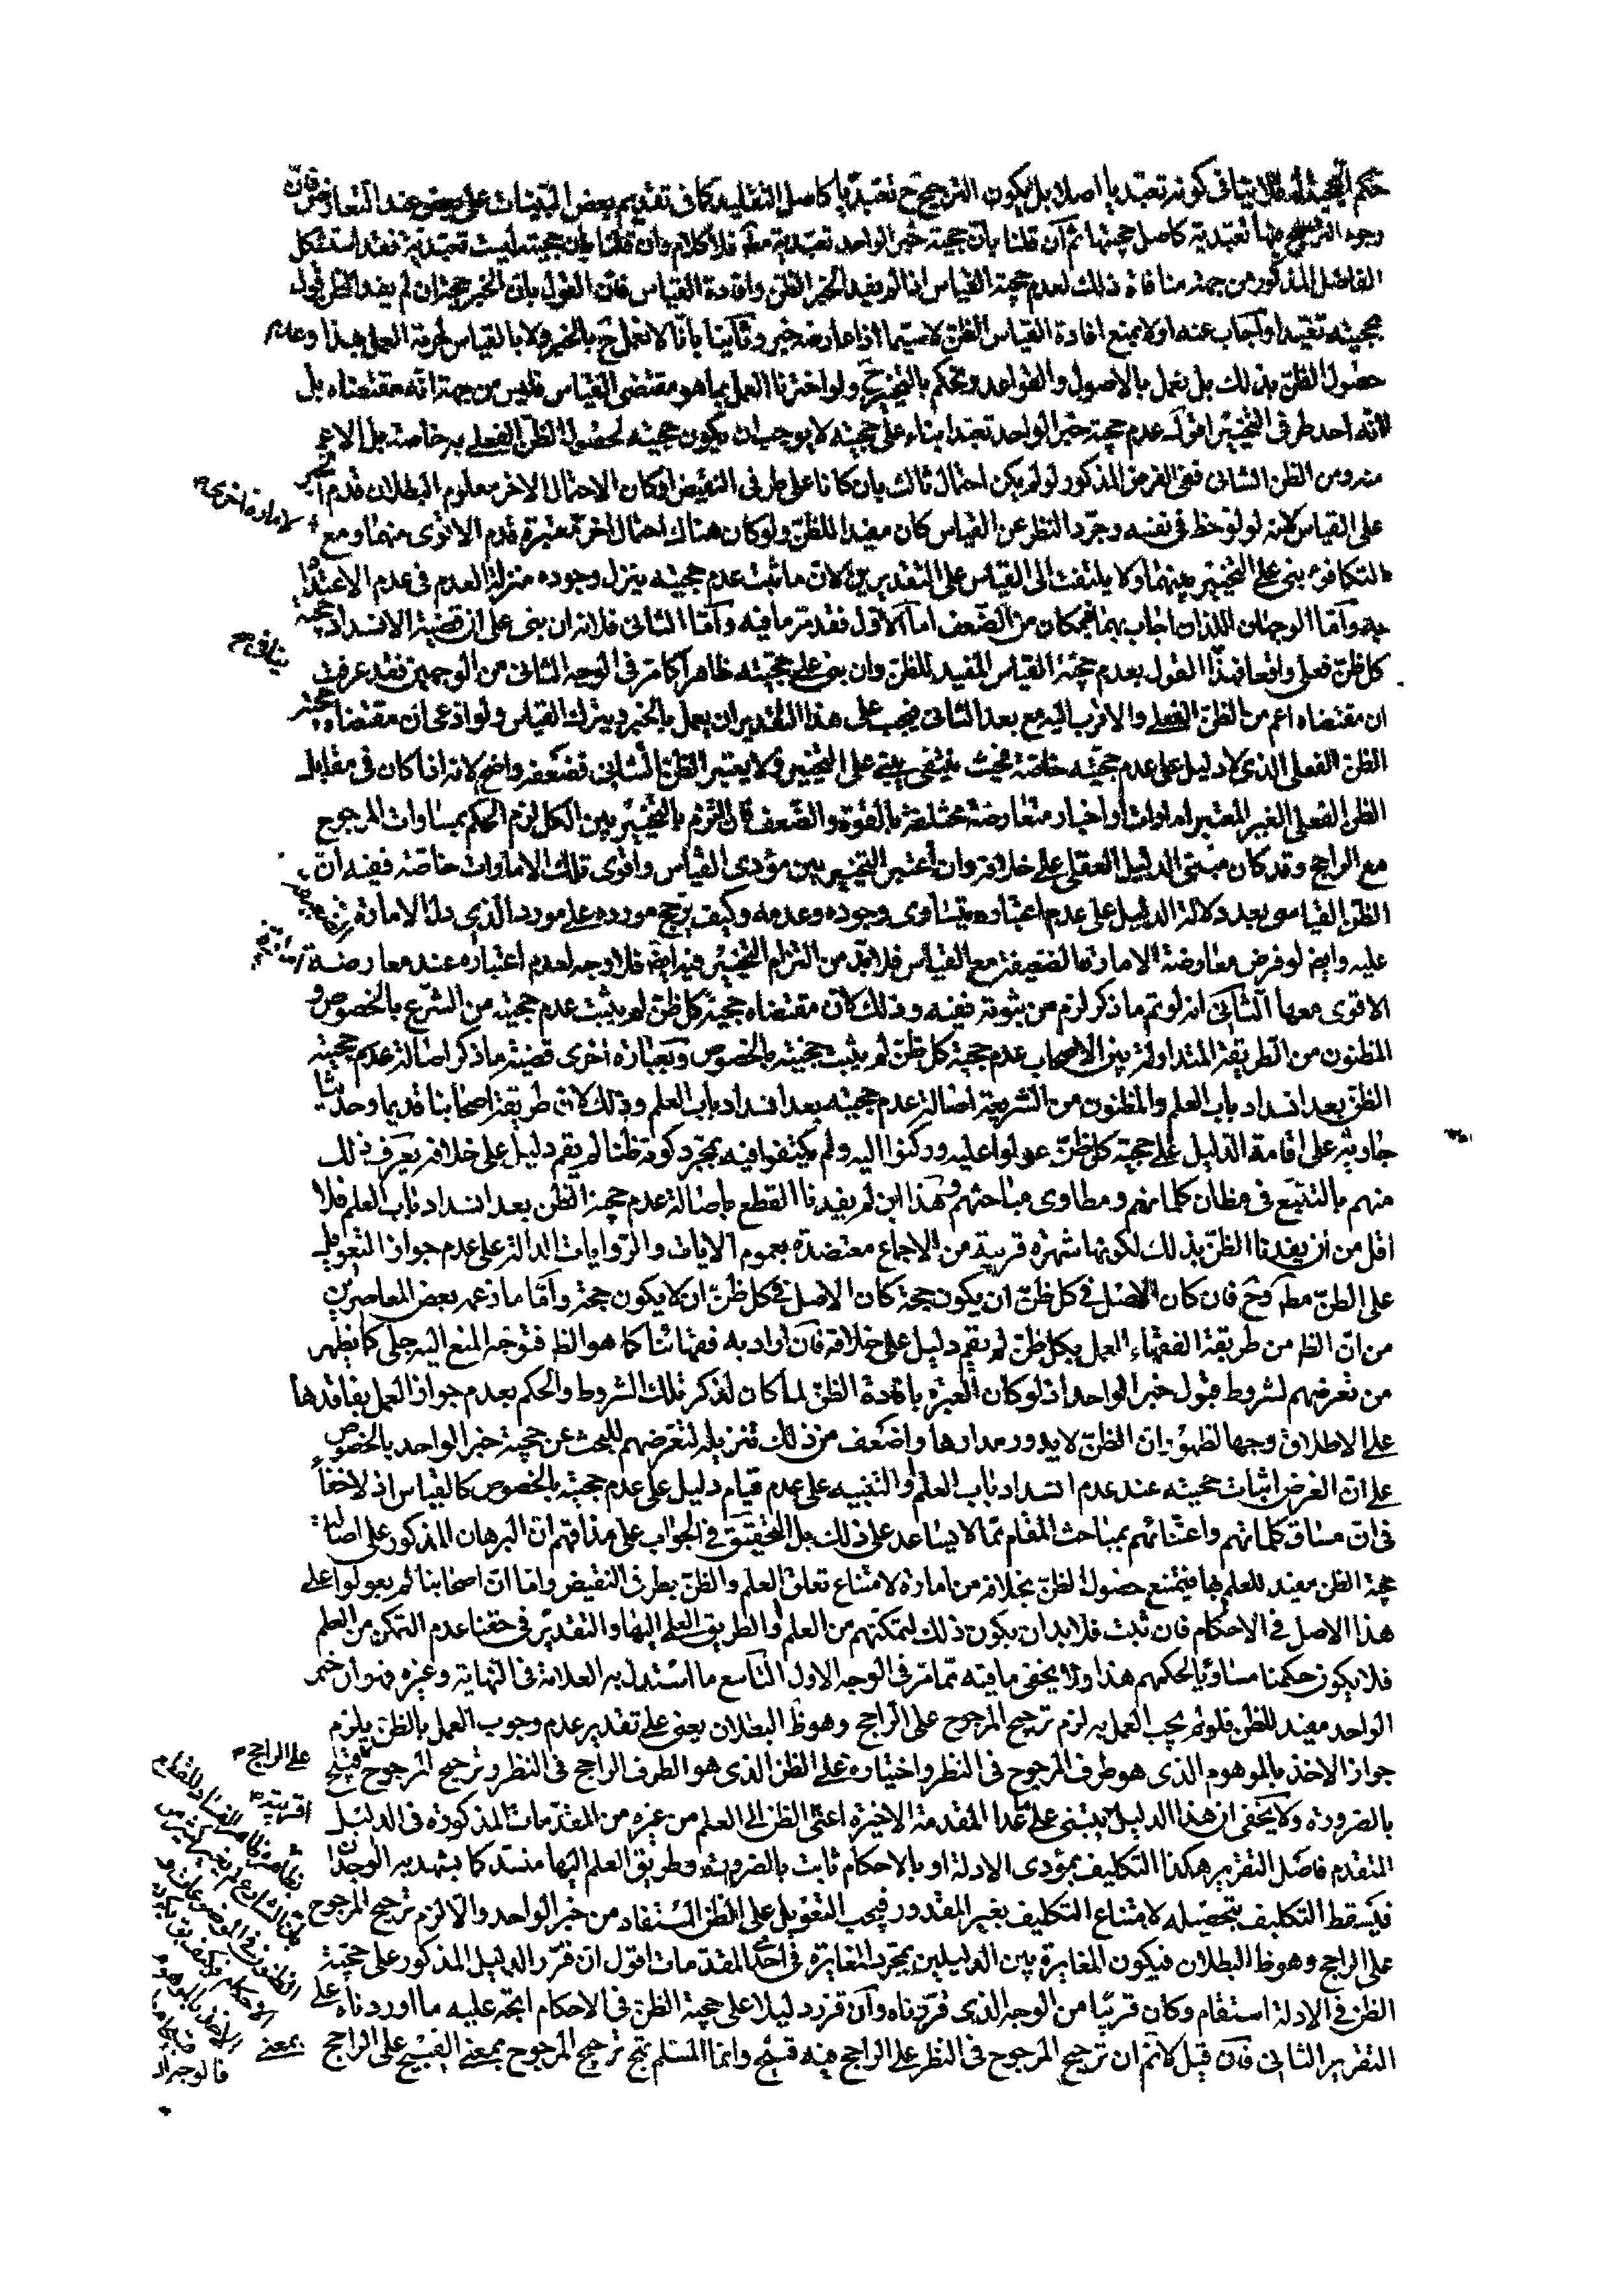 حكم الحجية له فلا ينافى كونه تعبديا اصلا بل يكون الترجيح ح تعبديا كاصل التقليد كما فى تقديم بعض البينات على بعض عند التعارض فان
وجوه الترجيح فيها تعبدية كاصل حجيتها ثم ان قلنا بان حجية خبر الواحد تعبدية مطم فلا كلام وان قلنا بان حجيته ليست تعبدية فقد استشكل
الفاضل المذكور من جهة منافاة ذلك لعدم حجية القياس اذا لم يفد الخبر الظن وافاده القياس فان القول بان الخبر حجة وان لم يفد الظن قول
بحجيته تعبدا واجاب عنه اولا بمنع افادة القياس الظن لا سيما اذا عارضه خبر وثانيا بانا لا نعمل ح بالخبر ولا بالقياس لحرمة العمل بهذا وعدم
حصول الظن بذلك بل نعمل بالاصول والقواعد ونحكم بالتخيير ح ولو اخترنا العمل بما هو مقتضى القياس فليس من جهة انه مقتضاه بل
لانه احد طرفى التخيير اقول عدم حجية خبر الواحد تعبدا بناء على حجيته لا يوجب ان يكون حجيته لحصول الظن الفعلى به خاصة بل الاعم
منه ومن الظن الشانى ففى الفرض المذكور لو لم يكن احتمال ثالث بان كانا على طرفى النقيض او كان الاحتمال الاخر معلوم البطلان قدم الخبر
على القياس لانه لو لوحظ فى نفسه وجرد النظر عن القياس كان مفيدا للظن ولو كان هناك احتمال اخر معتبرة قدم الاقوى منهما ومع
لامارة اخرى
التكافؤ بنى على التخيير بينهما ولا يلتفت الى القياس على التقديرين لان ما ثبت عدم حجيته ينزل وجوده منزلة العدم فى عدم الاعتداد
به واما الوجهان اللذان اجاب بهما فبمكان من الضعف اما الاول فقد مر ما فيه واما الثانى فلانه ان بنى على ان قضية الانسداد حجية
كل ظن فعلى واقعا فهذا القول بعدم حجية القياس المفيد للظن وان بنى على حجيته ظاهرا كما مر فى الوجه الثانى من الوجهين فقد عرفت
ينافى ح
ان مقتضاه اعم من الظن الفعلى والاقرب اليه مع بعد الثانى فيجب على هذا التقدير ان يعمل بالخبر ويترك القياس ولو ادعى ان مقتضاه حجية
الظن الفعلى الذى لا دليل على عدم حجيته خاصة فحيث ينتفى يبنى على التخيير ولا يعتبر الظن الشانى فضعفه واضح لانه اذا كان فى مقابلة
الظن الفعلى الغير المعتبر امارات او اخبار متعارضة مختلفة بالقوة والضعف فان التزم بالتخيير بين الكل لزم الحكم بمساوات المرجوح
مع الراجح وقد كان مبنى الدليل العقلى على خلافه وان اعتبر التخيير بين مؤدى القياس واقوى تلك الامارات خاصة ففيه ان
الظن القياسى بعد دلالة الدليل على عدم اعتباره يتساوى وجوده وعدمه وكيف يرجح مورده على مورد الذى دل الامارة
عليه وايضا لو فرض معارضة الامارة الضعيفة مع القياس فلا بد من التزام التخيير فيه ايضا فلا وجه لعدم اعتباره عند معارضة
الاقوى معها الثانى انه لو تم ما ذكر لزم من ثبوته نفيه وذلك لان مقتضاه حجية كل ظن لم يثبت عدم حجيته من الشرع بالخصوص و
المظنون من الطريقة المتداولة بين الاصحاب عدم حجية كل ظن لم يثبت حجيته بالخصوص وبعبارة اخرى قضية ما ذكر اصالة عدم حجية
الظن بعد انسداد باب العلم والمظنون من الشريعة اصالة عدم حجيته بعد انسداد باب العلم وذلك لان طريقة اصحابنا قديما وحديثا
جارية على اقامة الدليل على حجية كل ظن عولوا عليه وركنوا اليه ولم يكتفوا فيه بمجرد كونه ظنا لم يقم دليل على خلافه يعرف ذلك
منهم بالتتبع فى مظان كلماتهم ومطاوى مباحثهم وهذا ان لم يفدنا القطع باصالة عدم حجية الظن بعد انسداد باب العلم فلا
اقل من ان يفيدنا الظن بذلك لكونها شهرة قريبة من الاجماع معتضدة بعموم الايات والروايات الدالة على عدم جواز التعويل
على الظن مطم وح فان كان الاصل فى كل ظن ان يكون حجة كان الاصل فى كل ظن ان لا يكون حجة واما ما زعمه بعض المعاصرين
من ان الظ من طريقة الفقهاء العمل بكل ظن لم يقم دليل على خلافه فان اراد به فقهائنا كما هو الظ فتوجه المنع اليه جلى كما يظهر
من تعرضهم لشروط قبول خبر الواحد اذ لو كان العبرة بافادة الظن لما كان لذكر تلك الشروط والحكم بعدم جواز العمل بفاقدها
على الاطلاق وجها لظهور ان الظن لا يدور مدارها واضعف من ذلك تنزيله لتعرضهم للبحث عن حجية خبر الواحد بالخصوص
على ان الغرض اثبات حجيته عند عدم انسداد باب العلم او التنبيه على عدم قيام دليل على عدم حجيته بالخصوص كالقياس اذ لا خفاء
فى ان مساق كلماتهم واعتنائهم بمباحث المقام مما لا يساعد على ذلك بل التحقيق فى الجواب على مذاقهم ان البرهان المذكور على اصالة
حجية الظن مفيد للعلم بها فيمتنع حصول الظن بخلافه من امارة لامتناع تعلق العلم والظن بطرفى النقيض واما ان اصحابنا لم يعولوا على
هذا الاصل فى الاحكام فان ثبت فلا بد ان يكون ذلك لتمكنهم من العلم او الطريق العلمى اليها والتقدير فى حقنا عدم التمكن من العلم
فلا يكون حكمنا مساويا لحكمهم هذا ولا يخفى ما فيه مما مر فى الوجه الاول التاسع ما استدل به العلامة فى النهاية وغيره فهو ان خبر
الواحد مفيد للظن فلو لم يجب العمل به لزم ترجيح المرجوح على الراجح وهو ظ البطلان يعنى على تقدير عدم وجوب العمل بالظن يلزم
جواز الاخذ بالموهوم الذى هو طرف المرجوح فى النظر واختياره على الظن الذى هو الطرف الراجح فى النظر وترجيح المرجوح قبيح
على الراجح
بالضرورة ولا يخفى ان هذا الدليل يبتنى على ما عدا المقدمة الاخيرة اعنى الظن الى العلم من غيره من المقدمات المذكورة فى الدليل
اقربية
المتقدم فاصل التقرير هكذا التكليف بمؤدى الادلة او بالاحكام ثابت بالضرورة وطريق العلم اليها منسد كما يشهد به الوجدان
فيسقط التكليف بتحصيله لامتناع التكليف بغير المقدور فيجب التعويل على الظن المستفاد من خبر الواحد والا لزم ترجيح المرجوح
على الراجح وهو ظ البطلان فيكون المغايرة بين الدليلين بمجرد المغايرة فى احدى المقدمات اقول ان قرر الدليل المذكور على حجية
الظن فى الادلة استقام وكان قريبا من الوجه الذى قررناه وان قرر دليلا على حجية الظن فى الاحكام اتجه عليه ما اوردناه على
التقرير الثانى فان قيل لا نم ان ترجيح المرجوح فى النظر على الراجح فيه قبيح وانما المسلم قبح ترجيح المرجوح بمعنى القبيح على الراجح بمعنى